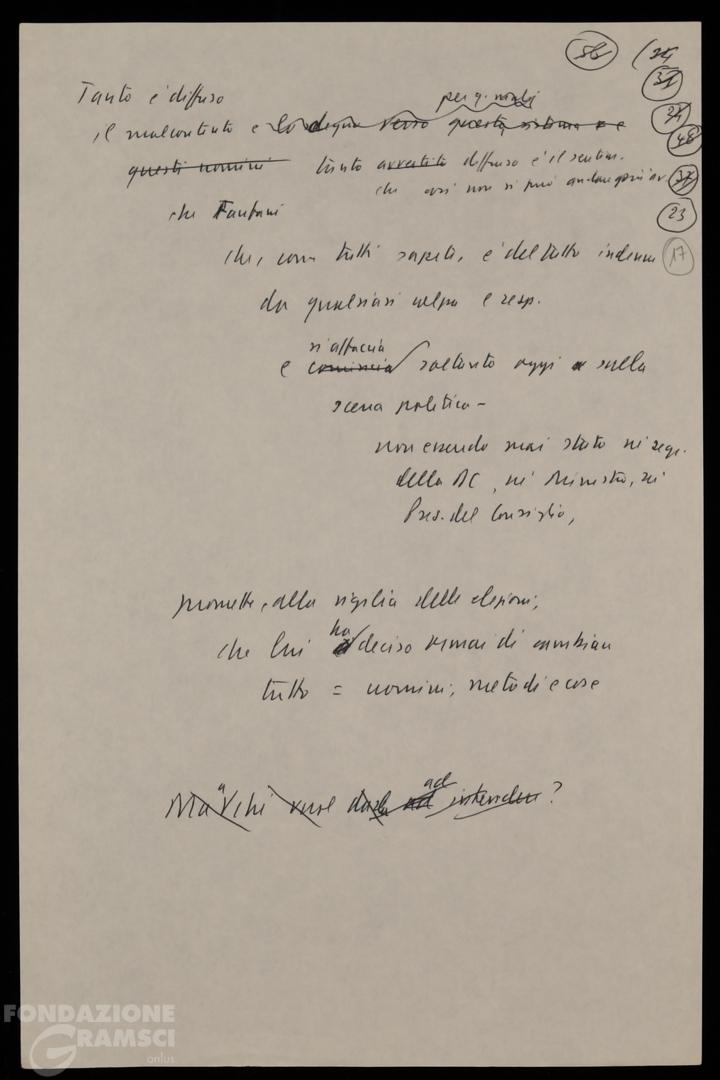 56
31
48
23
17
Tanto è diffuso
il malcontento e lo sdegno verso questo sistema e
questi uomini tanto avvertito diffuso è il sentim.
che così non si può andare
che Fanfani
che, come tutti sapete, è del tutto indenne
da qualsiasi colpa e resp.
s'affaccia
e comincia soltanto oggi sulla
scena politica -
non essendo mai stato né segr.
della DC, né Ministro, né
Pres. del Consiglio,
promette, alla vigilia delle elezioni,
ha
che lui deciso ormai di cambiare
tutto = uomini, metodi e cose
a ad
Ma chi vuol darla ad intendere ?
FONDAZIONE
GRAMSCI
onlus